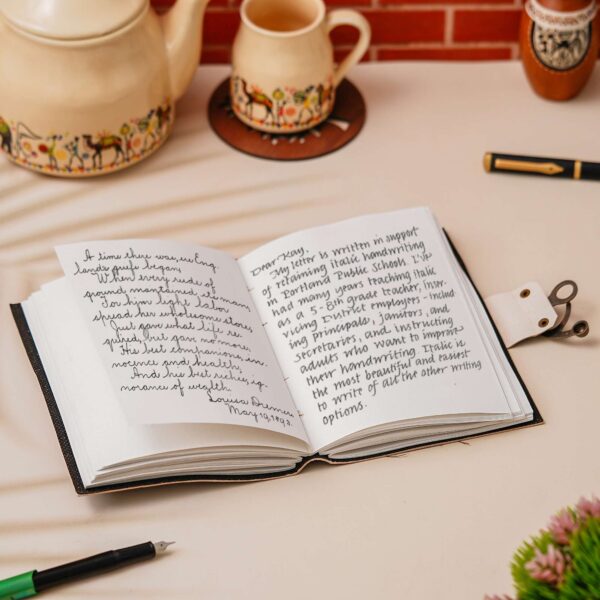 A time there was, ere Eng
lands griefs began,
When every rood of
ground maintained its man;
For him light labor
spread her wholesome stores,
Just gave what life re
quired, but gave no more;
His best companions, in
nocence and health;
And his best riches, ig
norance of wealth.
Louisa
May 19, 1893.
Dear Kay,
My letter is written in support
of retaining italic handwriting
in Portland Public Schools. I've
had many years teaching italic
as a 5-8th grade teacher, inser-
vicing District employees - includ
ing principals, janitors, and
secretaries, and instructing
adults who want to improve
their handwriting. Italic is
the most beautiful and easiest
to write of all the other writing
options.